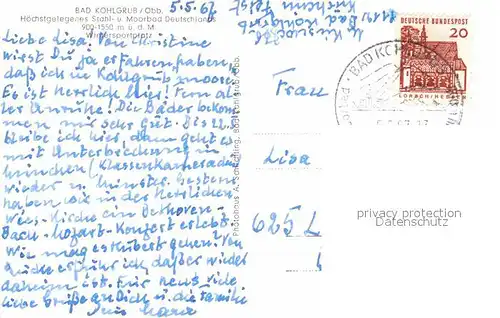 BAD KOHLGRUB / Obb.
Höchstgelegenes Stahl- u. Moorbad Deutschlands
900-1550 m ü. d. M.
Wintersportplatz
5.5.67
Liebe Lisa! Von Christine
wirst Du ja erfahren haben,
daß ich in Kohlgrub moore.
Es ist herrlich hier! Fern al-
ler Unruhe! Die Bäder bekom-
men mir sehr gut. Bis 22.
bleibe ich hier, dann geht es
mit Unterbrechung in
München (Klassenkameraden)
wieder n. Münster. Gestern
haben wir in der herrlichen
Wies-Kirche ein Bethoven-
Bach-Mozart-Konzert erlebt.
Wie mag es Hubert gehen? Von
erfuhr ich, daß er wieder
daheim ist. Für heut viele
liebe Grüße an Dich u. die Familie
Bad Kohlgrub
Frau
Lisa
625 L
DEUTSCHE BUNDESPOST
20
LORSCH/HESSEN
BAD KOHLGRUB
privacy protection
Datenschutz